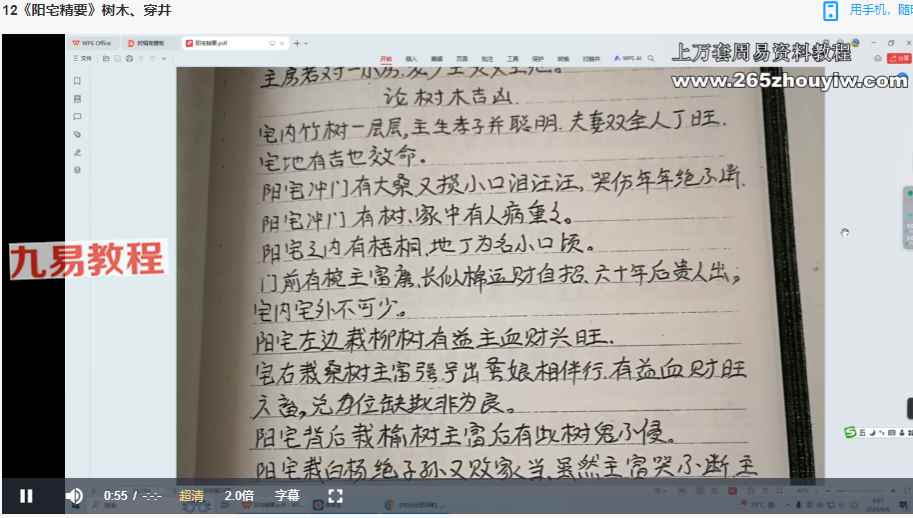 12《阳宅精要》树木、穿井
用手机，随时
WPS Office
阳宅精要.pdf
文件
开始 插入 编辑 页面 批注 工具 保护 转换
WPS AI
分享
上万套周易资料教程
www.265zhouyiw.com
主房若对一小房，
论树木吉凶
宅内竹树一层层，主生孝子并聪明，夫妻双全人丁旺，
宅地有吉也效命。
阳宅冲门有大桑又损小口泪汪汪，哭伤年年绝不断，
阳宅冲门有树、家中有人病重之。
阳宅之内有梧桐，地丁为名小口顷。
门前有椀主富康，长似棉正财自招、六十年后贵人出；
宅内宅外不可少。
阳宅左边栽柳树有益主血财兴旺，
宅右栽桑树主富强，出蚕娘相伴行，有益血财旺
六畜，兑为位缺欺非为良。
阳宅背后栽榆树主富后有此树鬼不侵。
阳宅栽白杨绝子孙又败家当，虽然主富哭不断主
九易教程
五
0:55 / -:-
超清
2.0倍
字幕